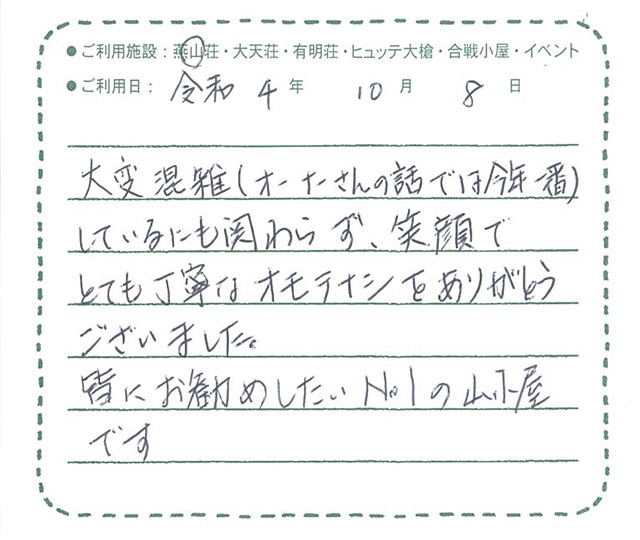 ●ご利用施設：燕山荘・大天荘・有明荘・ヒュッテ大槍・合戦小屋・イベント
●ご利用日：令和4年10月8日
大変混雑(オーナーさんの話では今年一番)
しているにも関わらず、笑顔で
とても丁寧なオモテナシをありがとう
ございました。
皆にお勧めしたいNo1の山小屋
です